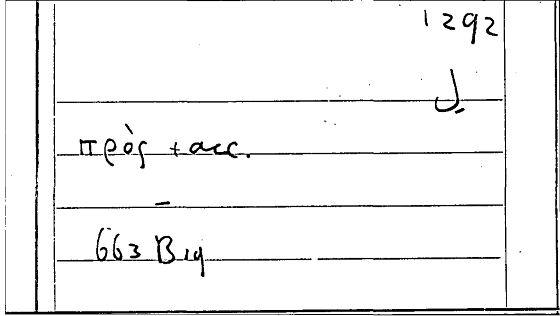 1292
لِ
πρὸς + acc.
–
663 B 19